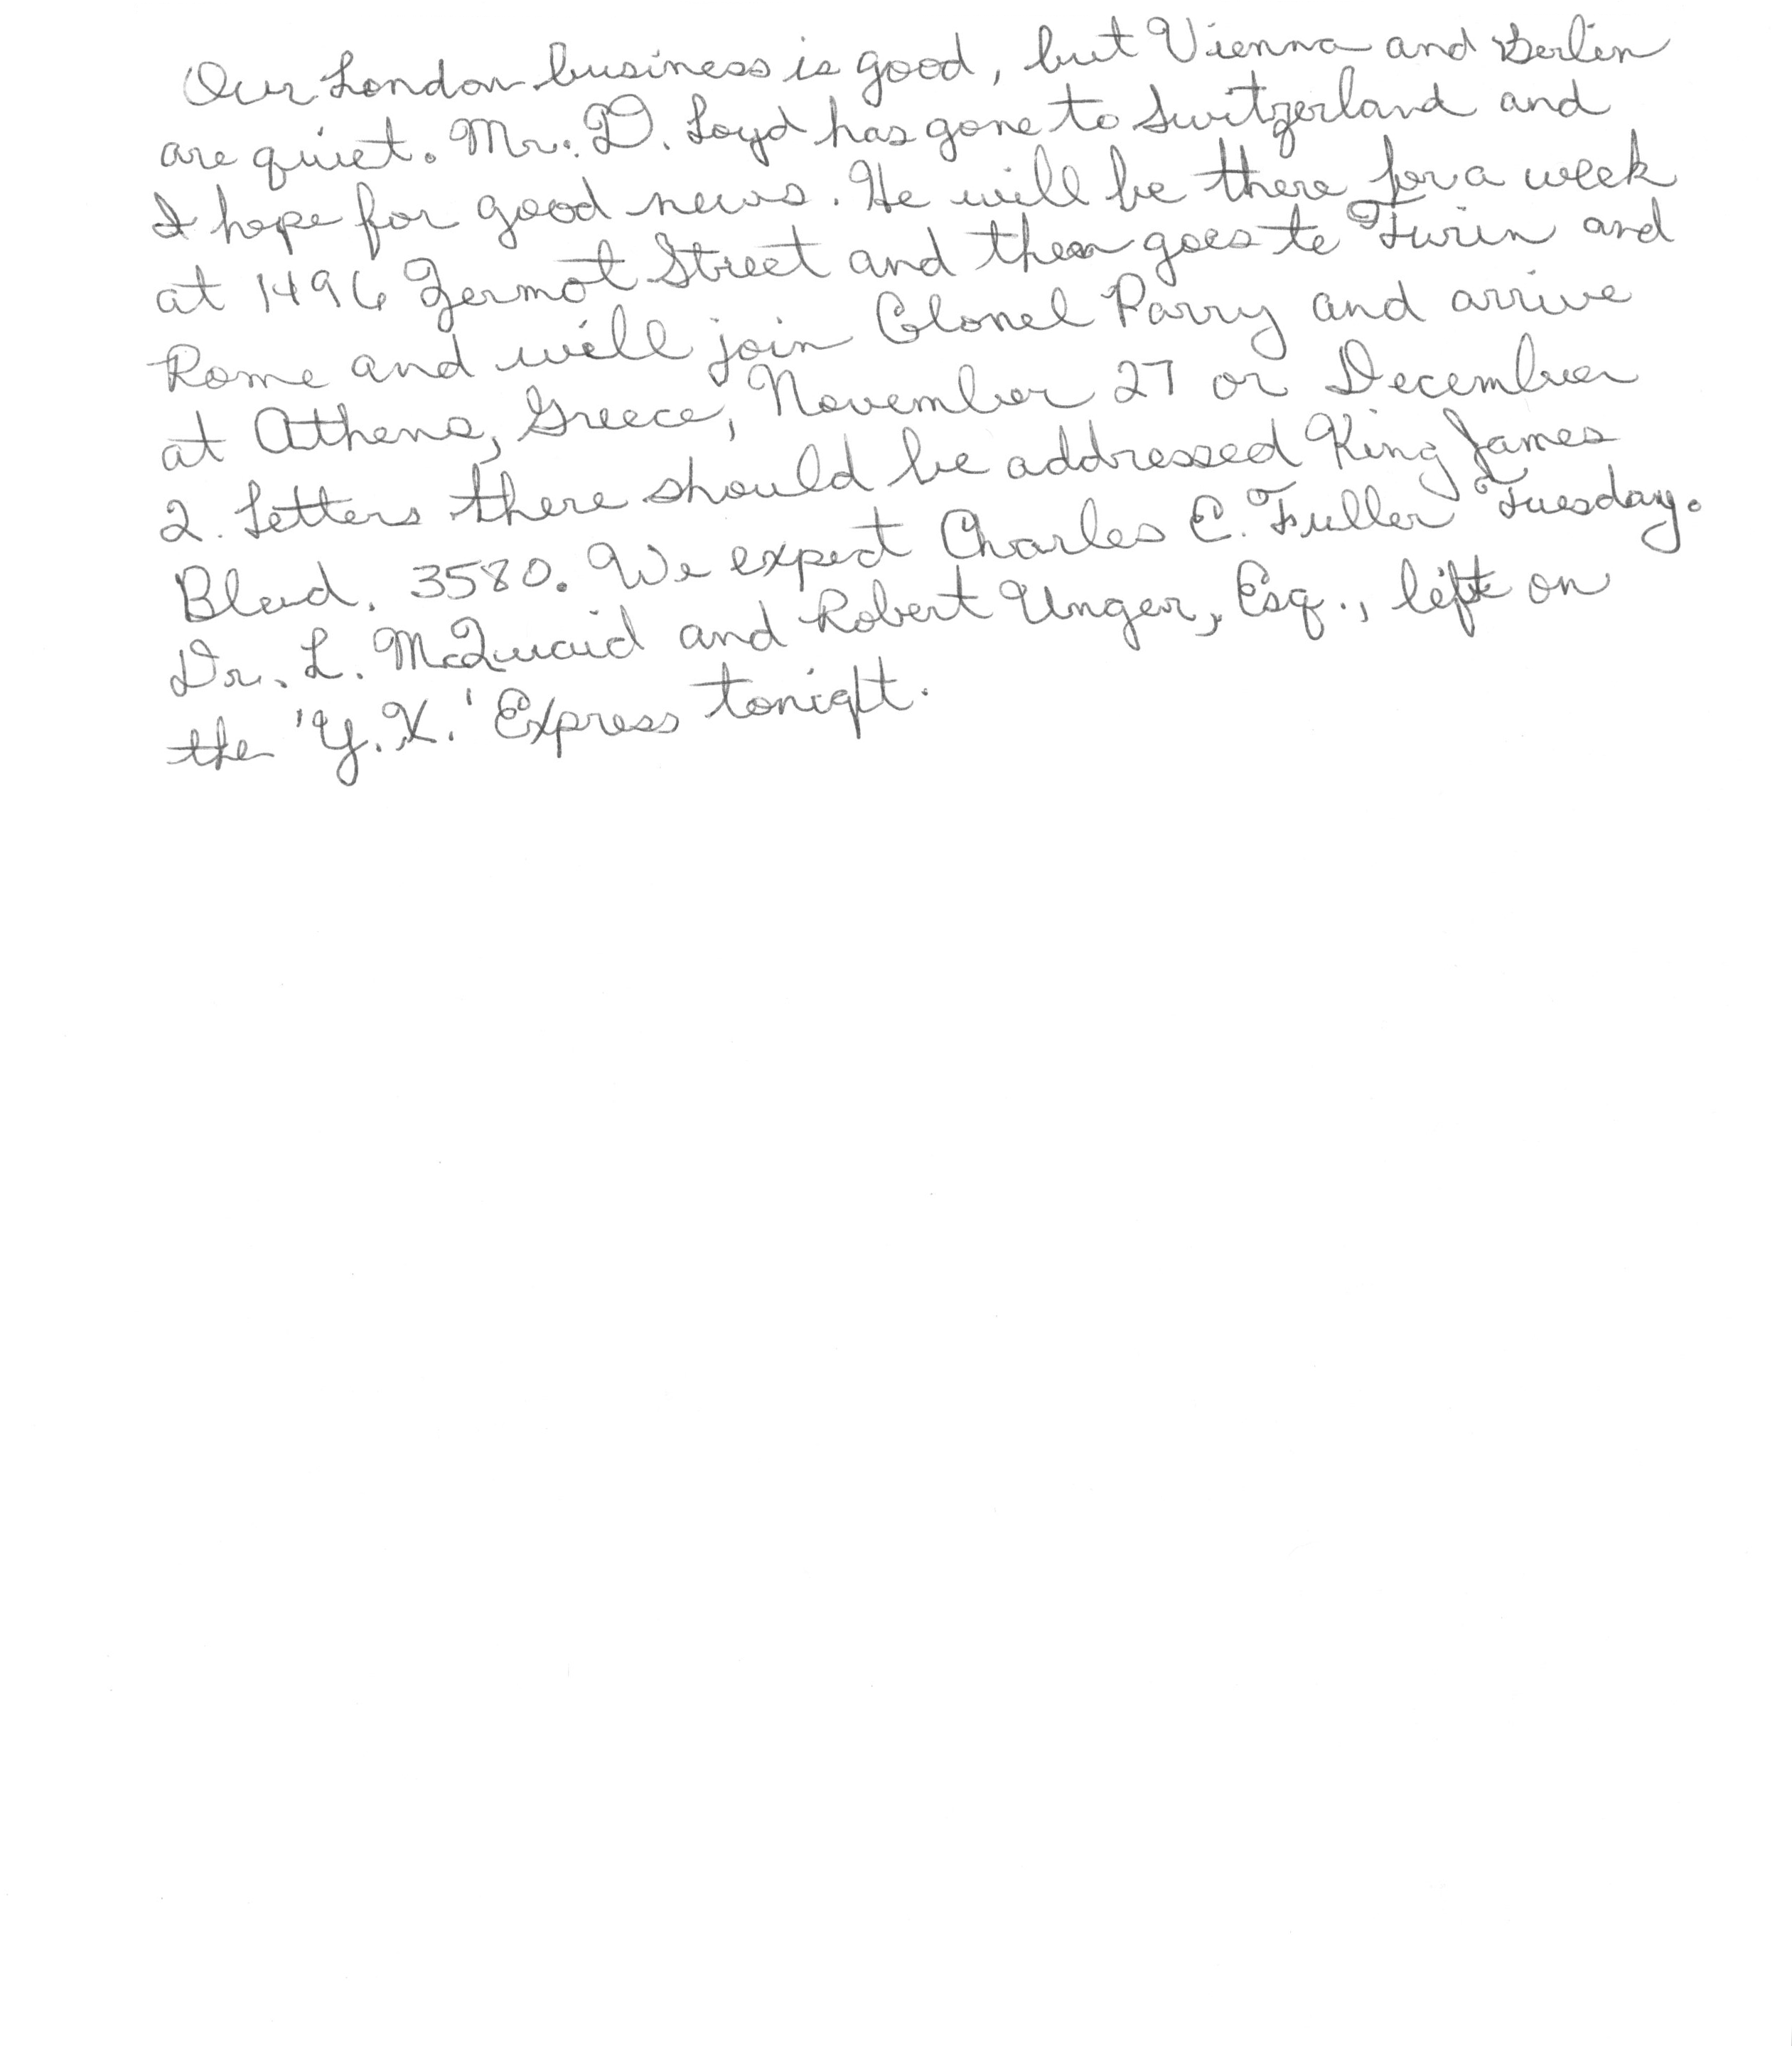 Our London business is good, but Vienna and Berlin
are quiet. Mr. D. Loyd has gone to Switzerland and
I hope for good news. He will be there for a week
at 1496 Zermot Street and then goes to Turin and
Rome and will join Colonel Parry and arrive
at Athens, Greece, November 27 or December
2. Letters there should be addressed King James
Blvd. 3580. We expect Charles E. Fuller Tuesday.
Dr. L. McQuaid and Robert Unger, Esq., left on
the 'Y.X.' Express tonight.